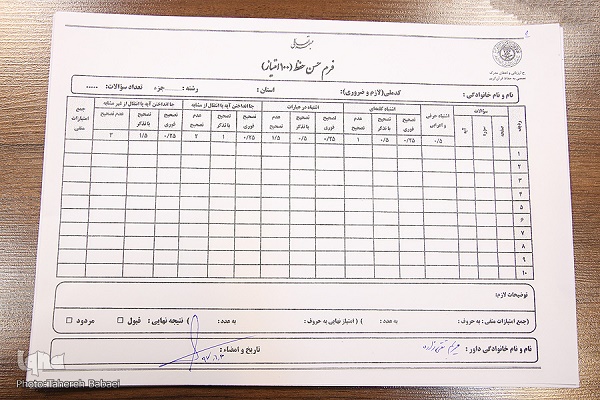 فرم حسن حفظ (۱۰۰ امتیاز)
نام و نام خانوادگی : کدملی(لازم و ضروری): استان : رشته : جزء تعداد سؤالات: .....
ردیف سؤالات اشتباه حرفی و اعرابی اشتباه کلمه‌ای اشتباه در عبارات جا انداختن آیه یا انتقال از مشابه جا انداختن آیه یا انتقال از غیر مشابه جمع امتیازات منفی
صفحه سوره آیه تصحیح فوری تصحیح با تذکر عدم تصحیح تصحیح فوری تصحیح با تذکر عدم تصحیح تصحیح فوری تصحیح با تذکر عدم تصحیح تصحیح فوری تصحیح با تذکر عدم تصحیح
۰/۵ ۰/۲۵ ۰/۵ ۱ ۰/۲۵ ۰/۵ ۱/۵ ۰/۲۵ ۱ ۲ ۰/۲۵ ۱/۵ ۳
۱
۲
۳
۴
۵
۶
۷
۸
۹
۱۰
توضیحات لازم:
(جمع امتیازات منفی : به حروف : به عدد : ) ( امتیاز نهایی به حروف : به عدد : ) نتیجه نهایی : قبول □ مردود □
نام و نام خانوادگی داور : تاریخ و امضاء :
Photo:Tahereh Babaei